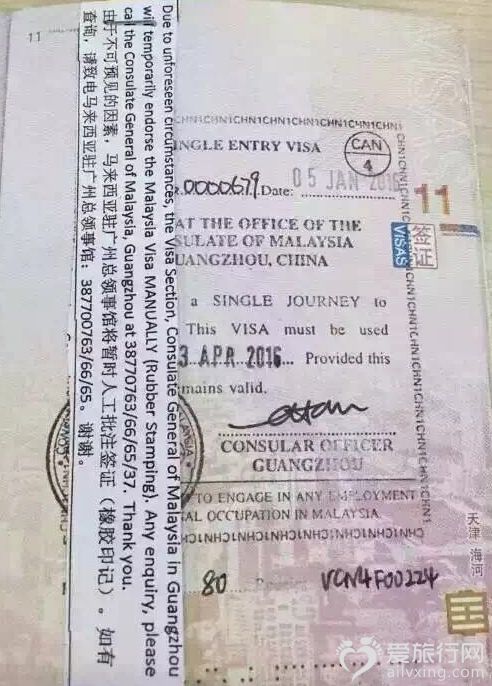 11
Due to unforeseen circumstances, the Visa Section, Consulate General of Malaysia in Guangzhou
will temporarily endorse the Malaysia Visa MANUALLY (Rubber Stamping). Any enquiry, please
call the Consulate General of Malaysia, Guangzhou at 38770763/66/65/37. Thank you.
由于不可预见的因素，马来西亚驻广州总领事馆将暂时人工批注签证（橡胶印记）。如有
查询，请致电马来西亚驻广州总领事馆：387700763/66/65。谢谢。
INGLE ENTRY VISA
CAN
4
0000679 Date: 05 JAN 2016
AT THE OFFICE OF THE
SULATE OF MALAYSIA
UANGZHOU, CHINA
a SINGLE JOURNEY to
This VISA must be used
3 APR 2016 Provided this
mains valid.
CONSULAR OFFICER
GUANGZHOU
TO ENGAGE IN ANY EMPLOYMENT
AL OCCUPATION IN MALAYSIA.
80
VCN4F00224
11
签证
VISAS
天津 海河
爱旅行网
ailvxing.com